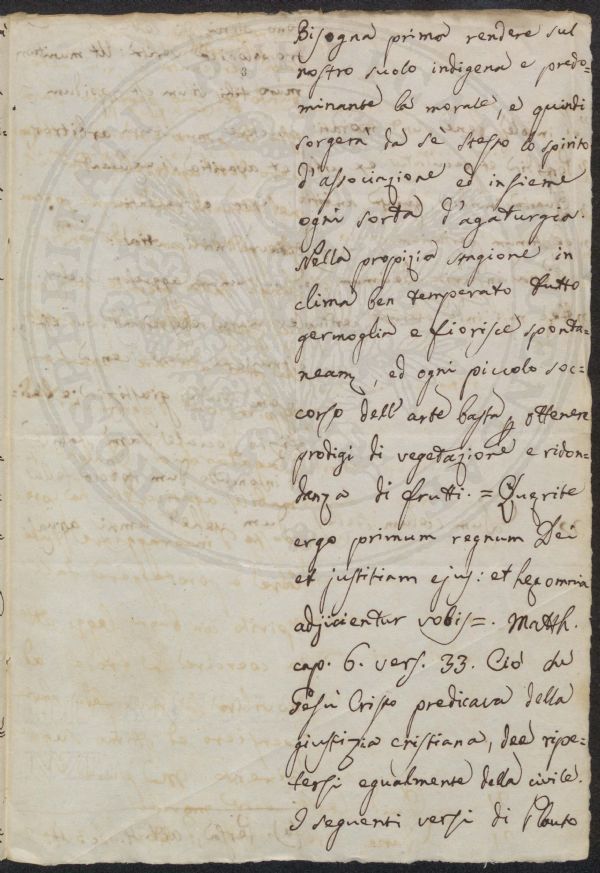 Bisogna prima rendere sul
nostro suolo indigena e predo=
minante la morale, e quindi
sorgerà da se stesso lo spirito
d'associazione ed insieme
ogni sorta d'agaturgia.
Nella propizia stagione in
clima ben temperato tutto
germoglia e fiorisce sponta=
neam., ed ogni piccolo soc=
corso dell'arte basta p ottenere
prodigi di vegetazione e ridon=
danza di frutti. = Quęrite
ergo primum regnum Dei
et justitiam ejus: et hęc omnia
adjicientur vobis =. Matth.
cap. 6. vers. 33. Ciò che
Gesù Cristo predicava della
giustizia cristiana, dee ripe=
tersi egualmente della civile.
I seguenti versi di Plauto